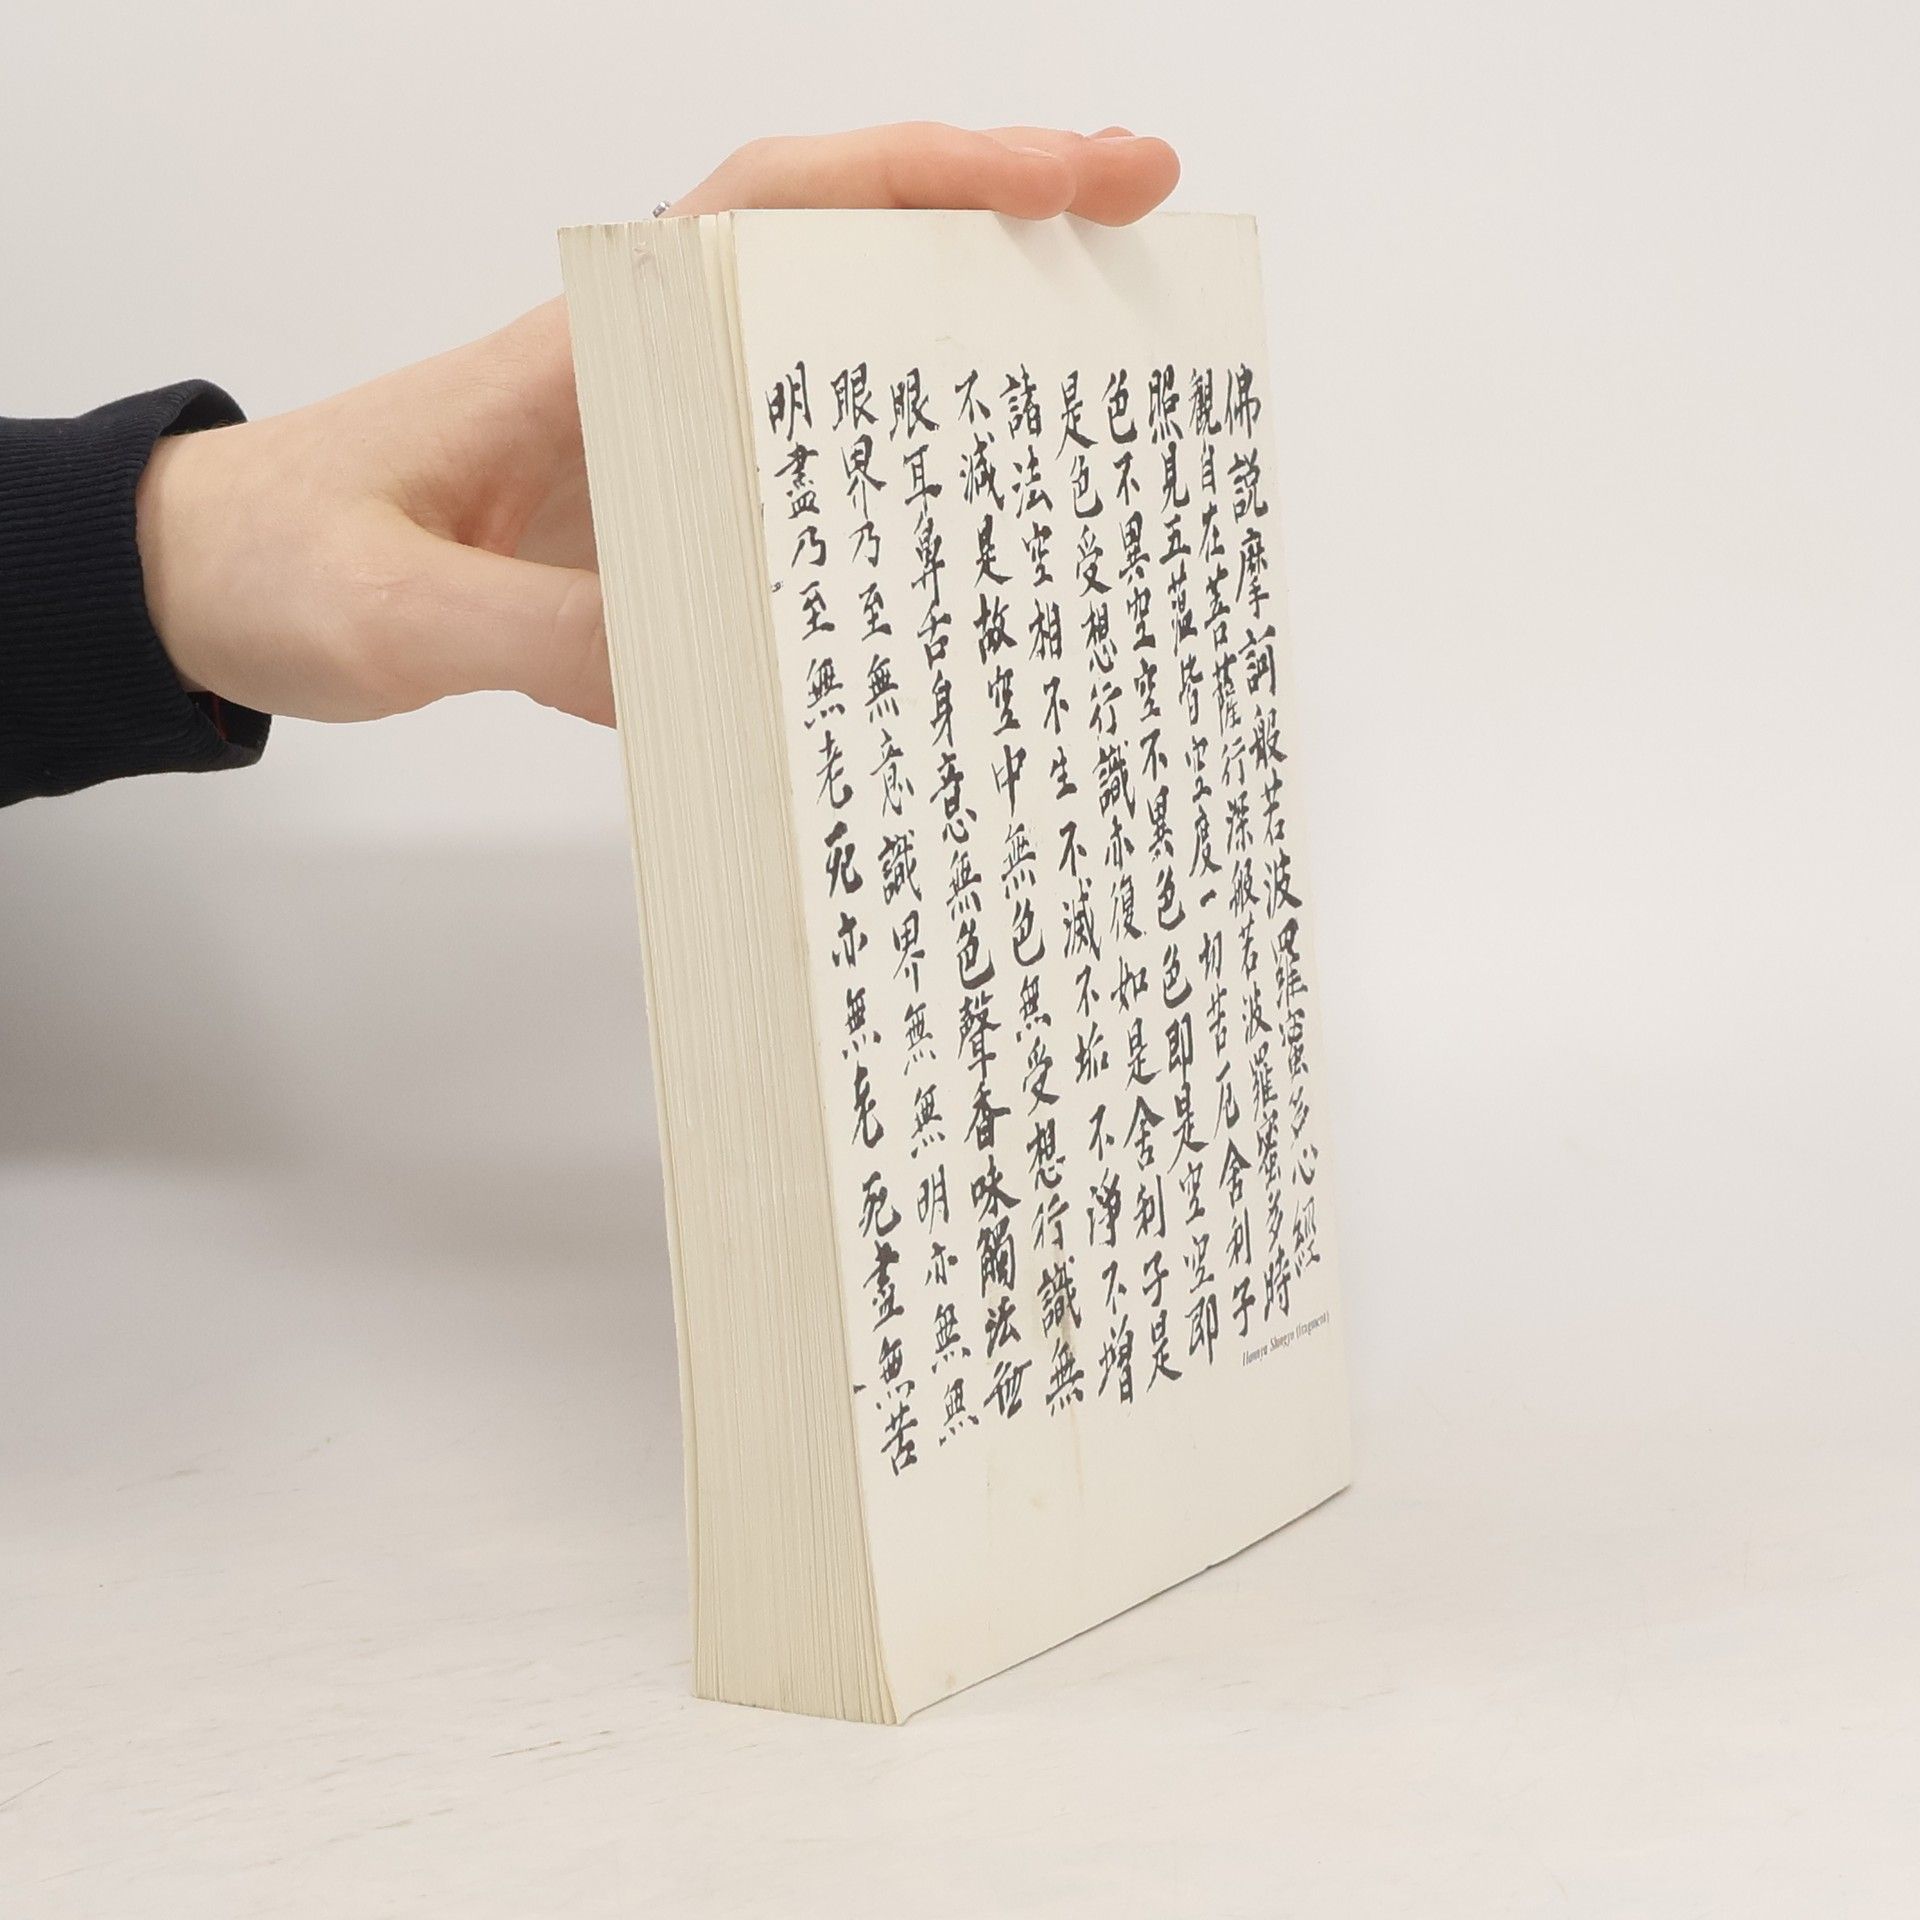 佛説摩訶般若波羅蜜多心經
観自在菩薩行深般若波羅蜜多時
照見五蘊皆空度一切苦厄舍利子
色不異空空不異色色即是空空即
是色受想行識亦復如是舍利子是
諸法空相不生不滅不垢不淨不増
不減是故空中無色無受想行識無
眼耳鼻舌身意無色聲香味觸法無
眼界乃至無意識界無無明亦無無
明盡乃至無老死亦無老死盡無苦
Hannya Shingyo (fragment)